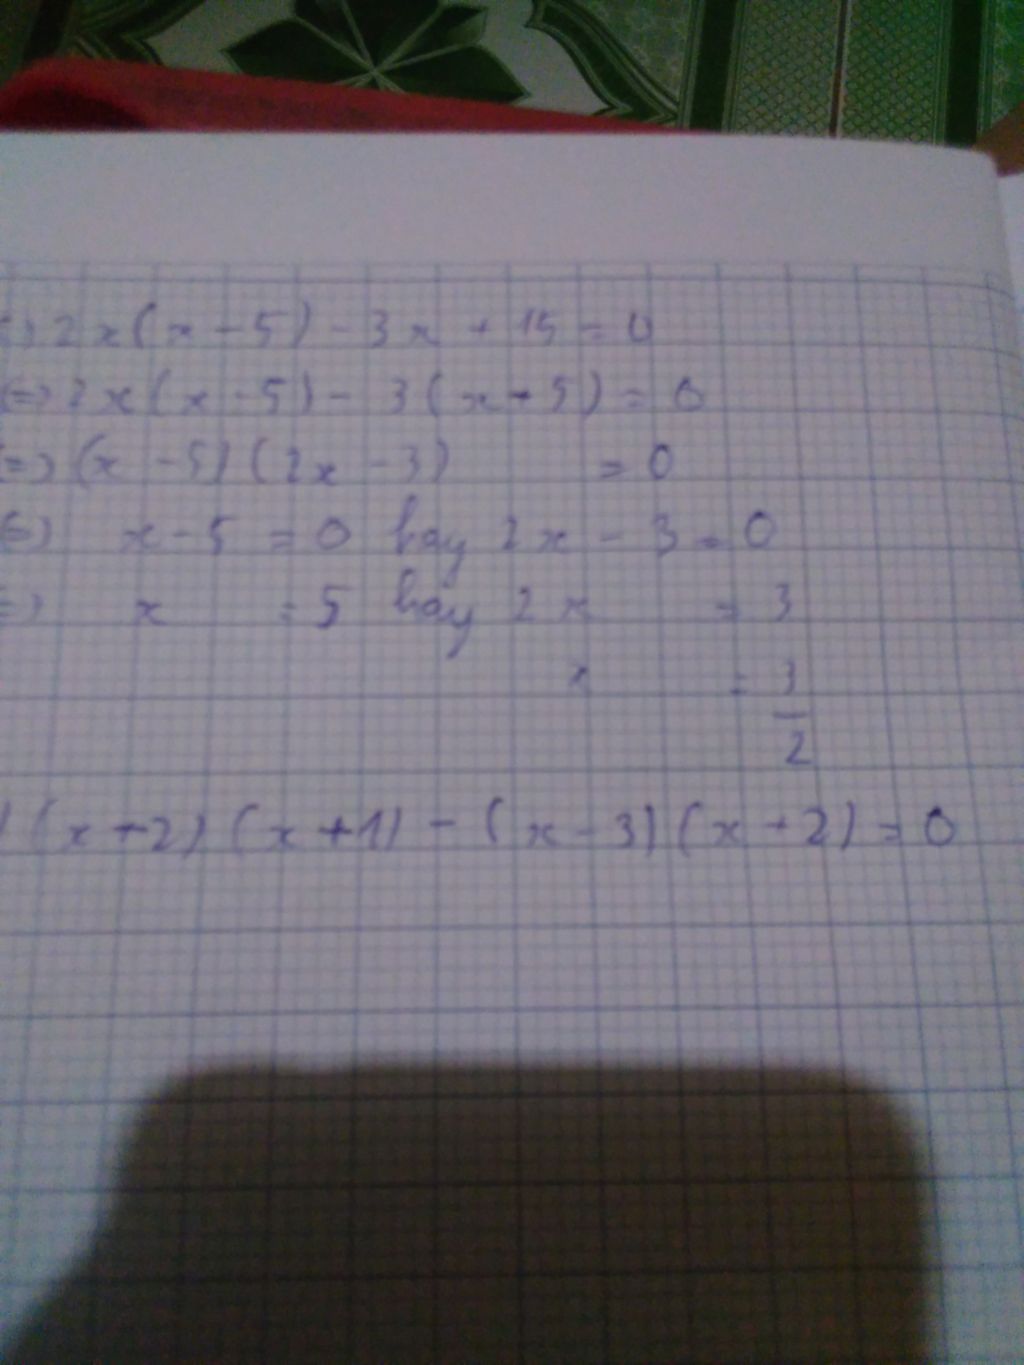 ⇔ 2x(x-5) - 3x + 15 = 0
⇔ 2x(x-5) - 3(x-5) = 0
⇔ (x-5)(2x-3) = 0
⇔ x-5 = 0 hay 2x - 3 = 0
⇔ x = 5 hay 2x = 3
x = 3/2
) (x+2)(x+1) - (x-3)(x+2) = 0